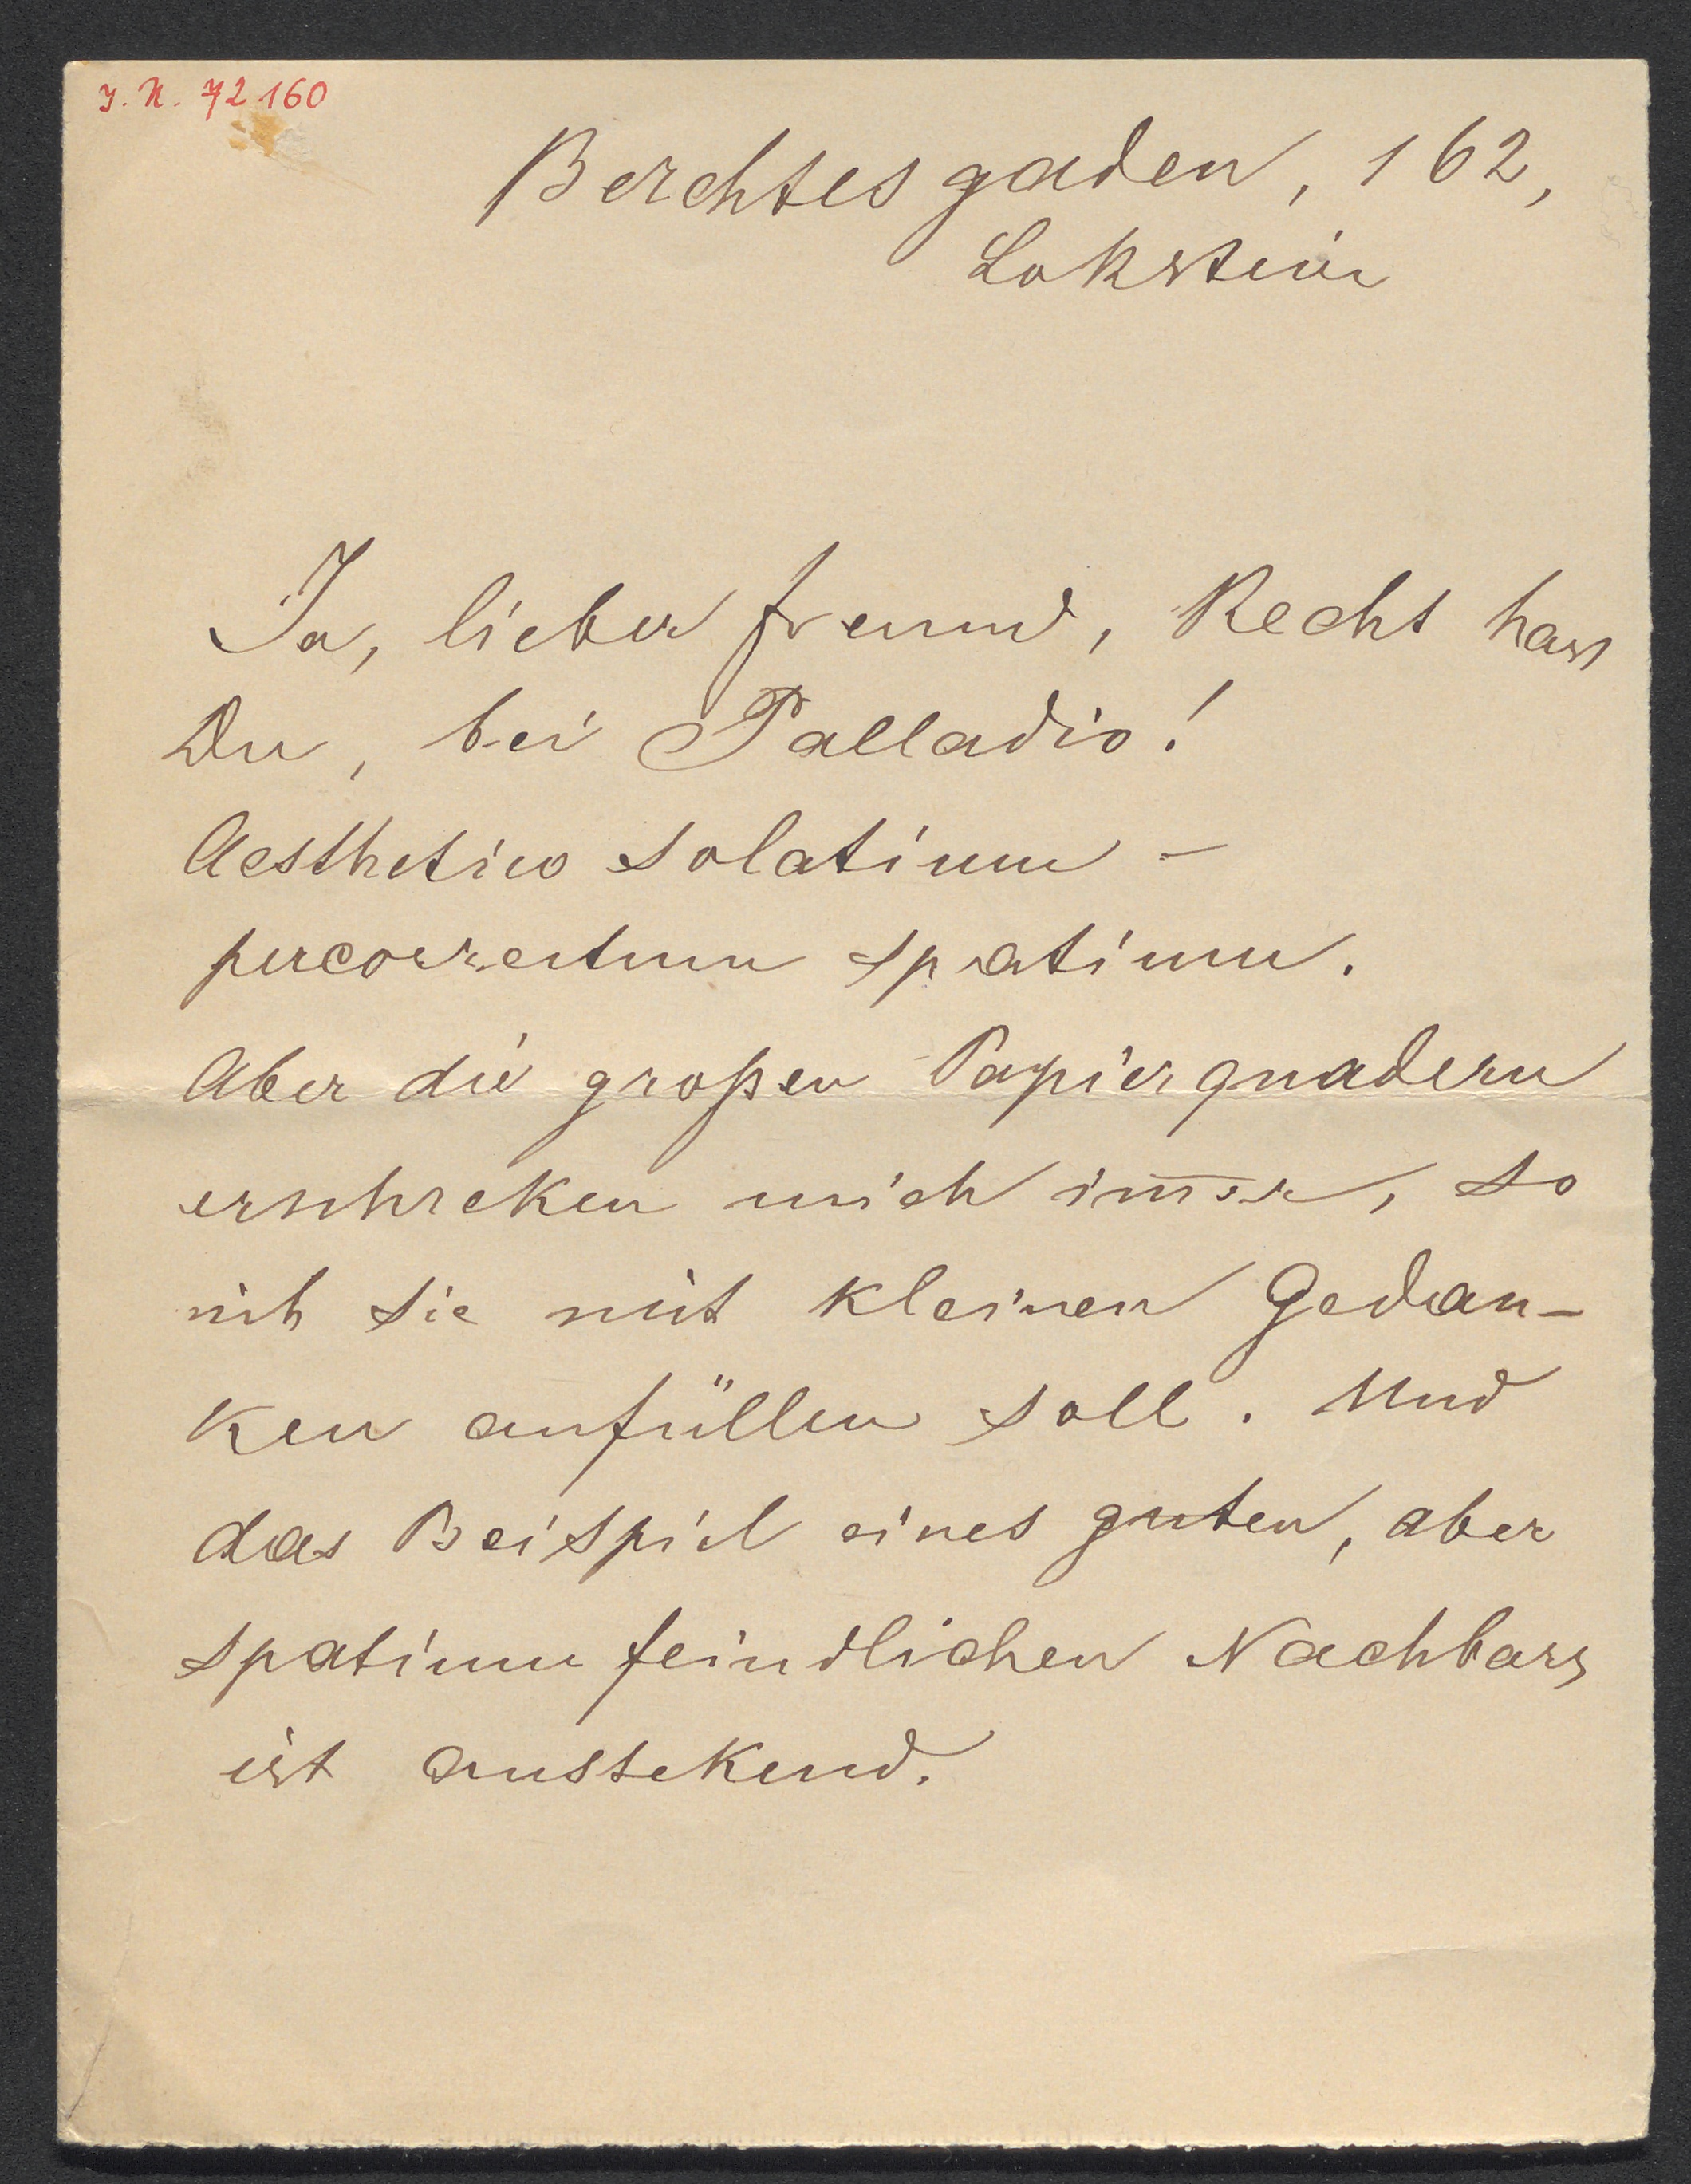 J. N. 72160
Berchtesgaden, 162,
Lokstein
Ja, lieber Freund, Recht hast
Du, bei Palladio!
Aesthetico solatium –
percorrentum spatium.
Aber die großen Papierquadern
erschreken mich im̅er, so
ich sie mit kleinen Gedan-
ken anfüllen soll. Und
das Beispiel eines guten, aber
spatiumfeindlichen Nachbars
ist anstekend.